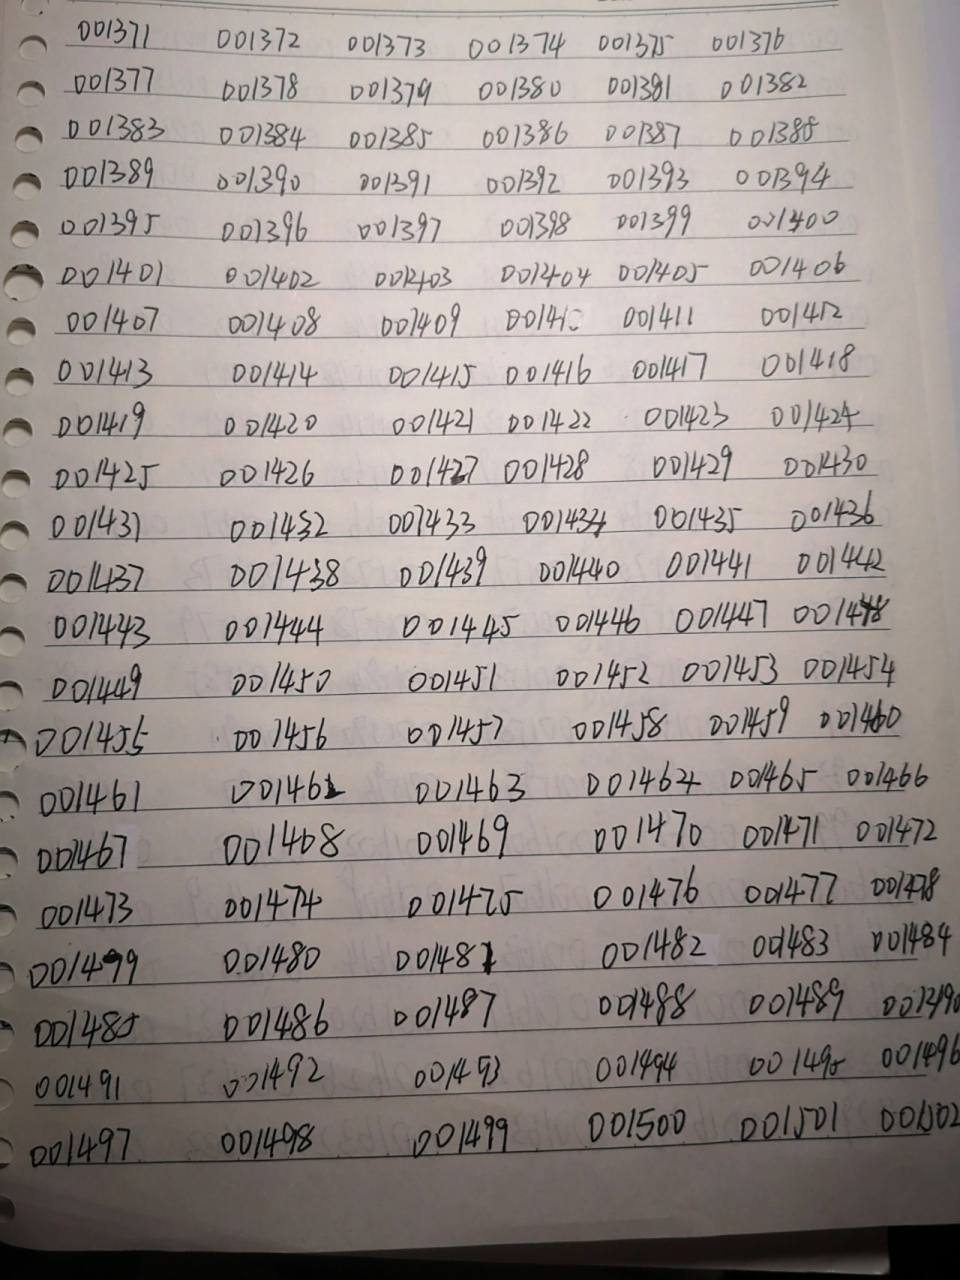 001371 001372 001373 001374 001375 001376
001377 001378 001379 001380 001381 001382
001383 001384 001385 001386 001387 001388
001389 001390 001391 001392 001393 001394
001395 001396 001397 001398 001399 001400
001401 001402 001403 001404 001405 001406
001407 001408 001409 001410 001411 001412
001413 001414 001415 001416 001417 001418
001419 001420 001421 001422 001423 001424
001425 001426 001427 001428 001429 001430
001431 001432 001433 001434 001435 001436
001437 001438 001439 001440 001441 001442
001443 001444 001445 001446 001447 001448
001449 001450 001451 001452 001453 001454
001455 001456 001457 001458 001459 001460
001461 001462 001463 001464 001465 001466
001467 001468 001469 001470 001471 001472
001473 001474 001475 001476 001477 001478
001499 001480 001481 001482 001483 001484
001485 001486 001487 001488 001489 001390
001491 001492 001493 001494 001495 001496
001497 001498 001499 001500 001501 001502